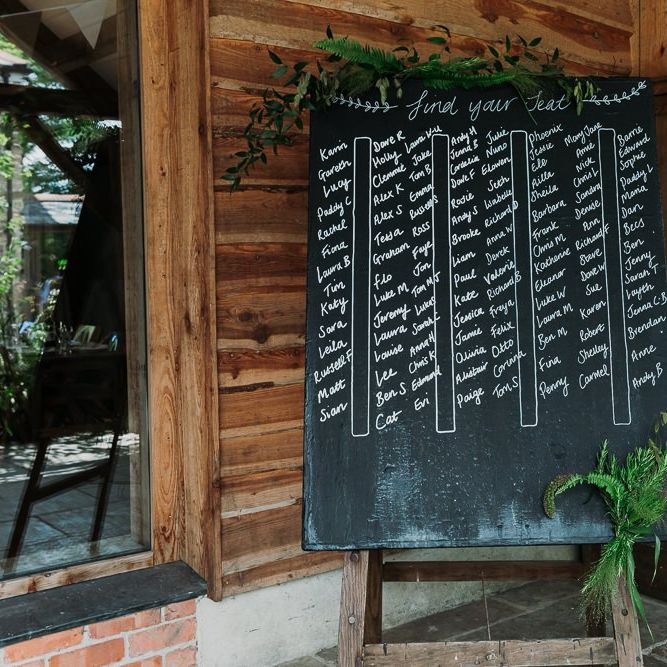 find your Seat
Karin
Gareth
Lucy
Paddy C
Rachel
Fiona
Laura B
Tim
Katy
Sara
Leila
Russell F
Matt
Sian
Dave R
Holly
Clemmie
Alex K
Alex S
Tessa
Graham
Flo
Luke M
Jeremy
Laura
Louise
Lee
Ben S
Cat
Laura
Jake
Tom B
Emma
Russell S
Ross
Faye
Jon
Tom M J
Luke
Sarah C
Anna H
Chris K
Edmond
Evi
Andy H
Jenna B
Cordelia
Dave F
Rosie
Andy S
Brooke
Liam
Paul
Kate
Jessica
Jamie
Olivia
Alistair
Paige
Julie
Nuno
Elowen
Seth
Richard D
Anna W
Derek
Valerie
Richard B
Freya
Felix
Otto
Corinna
Tom S
Phoenix
Jessie
Rilla
Sheila
Barbara
Frank
Chris M
Katharine
Eleanor
Luke W
Laura M
Ben M
Fina
Penny
Mary Jane
Anne
Nick
Chris L
Sandra
Denise
Ann
Richard F
Steve
Dave W
Sue
Karen
Robert
Shelley
Carmel
Barrie
Edward
Sophie
Paddy L
Maria
Dan
Becs
Ben
Jenny
Sarah T
Layth
Jenna C
Brendan
Anne
Andy B